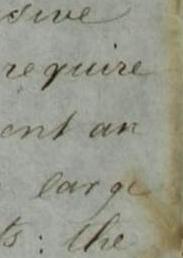 sive
require
ent an
large
ts: the